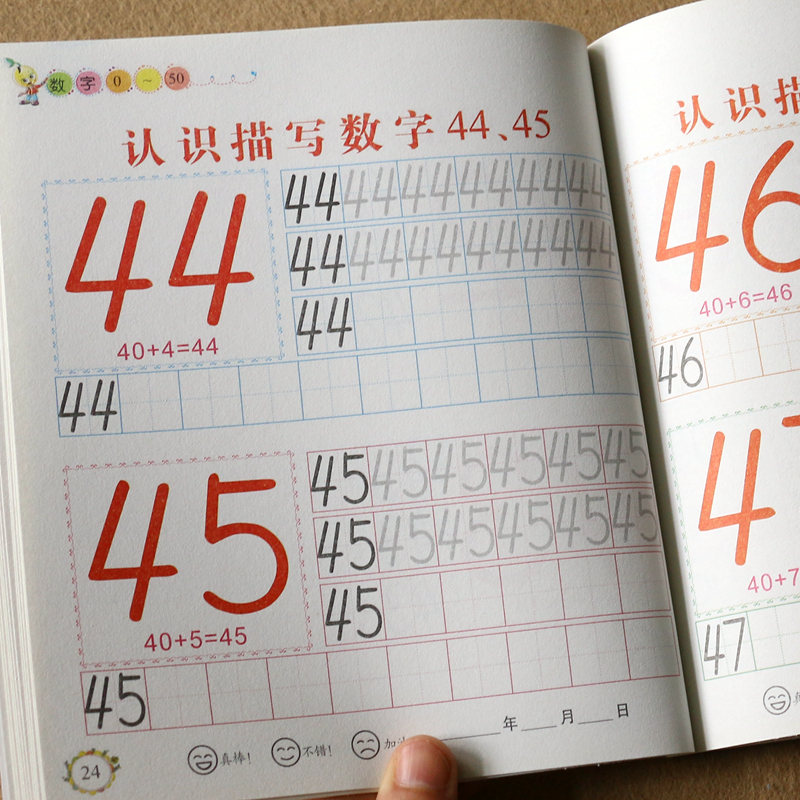 数字0~50
认识描写数字44、45
44
40+4=44
44 44 44 44 44 44
44 44 44 44 44 44
44
44
45
40+5=45
45 45 45 45 45 45
45 45 45 45 45 45
45
45
真棒! 不错! 加油 年 月 日
24
认识描
46
40+6=46
46
47
40+7
47